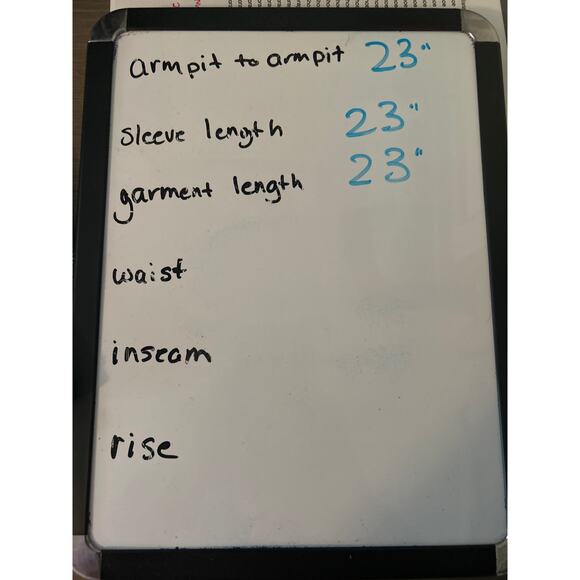 armpit to armpit 23"
sleeve length 23"
garment length 23"
waist
inseam
rise